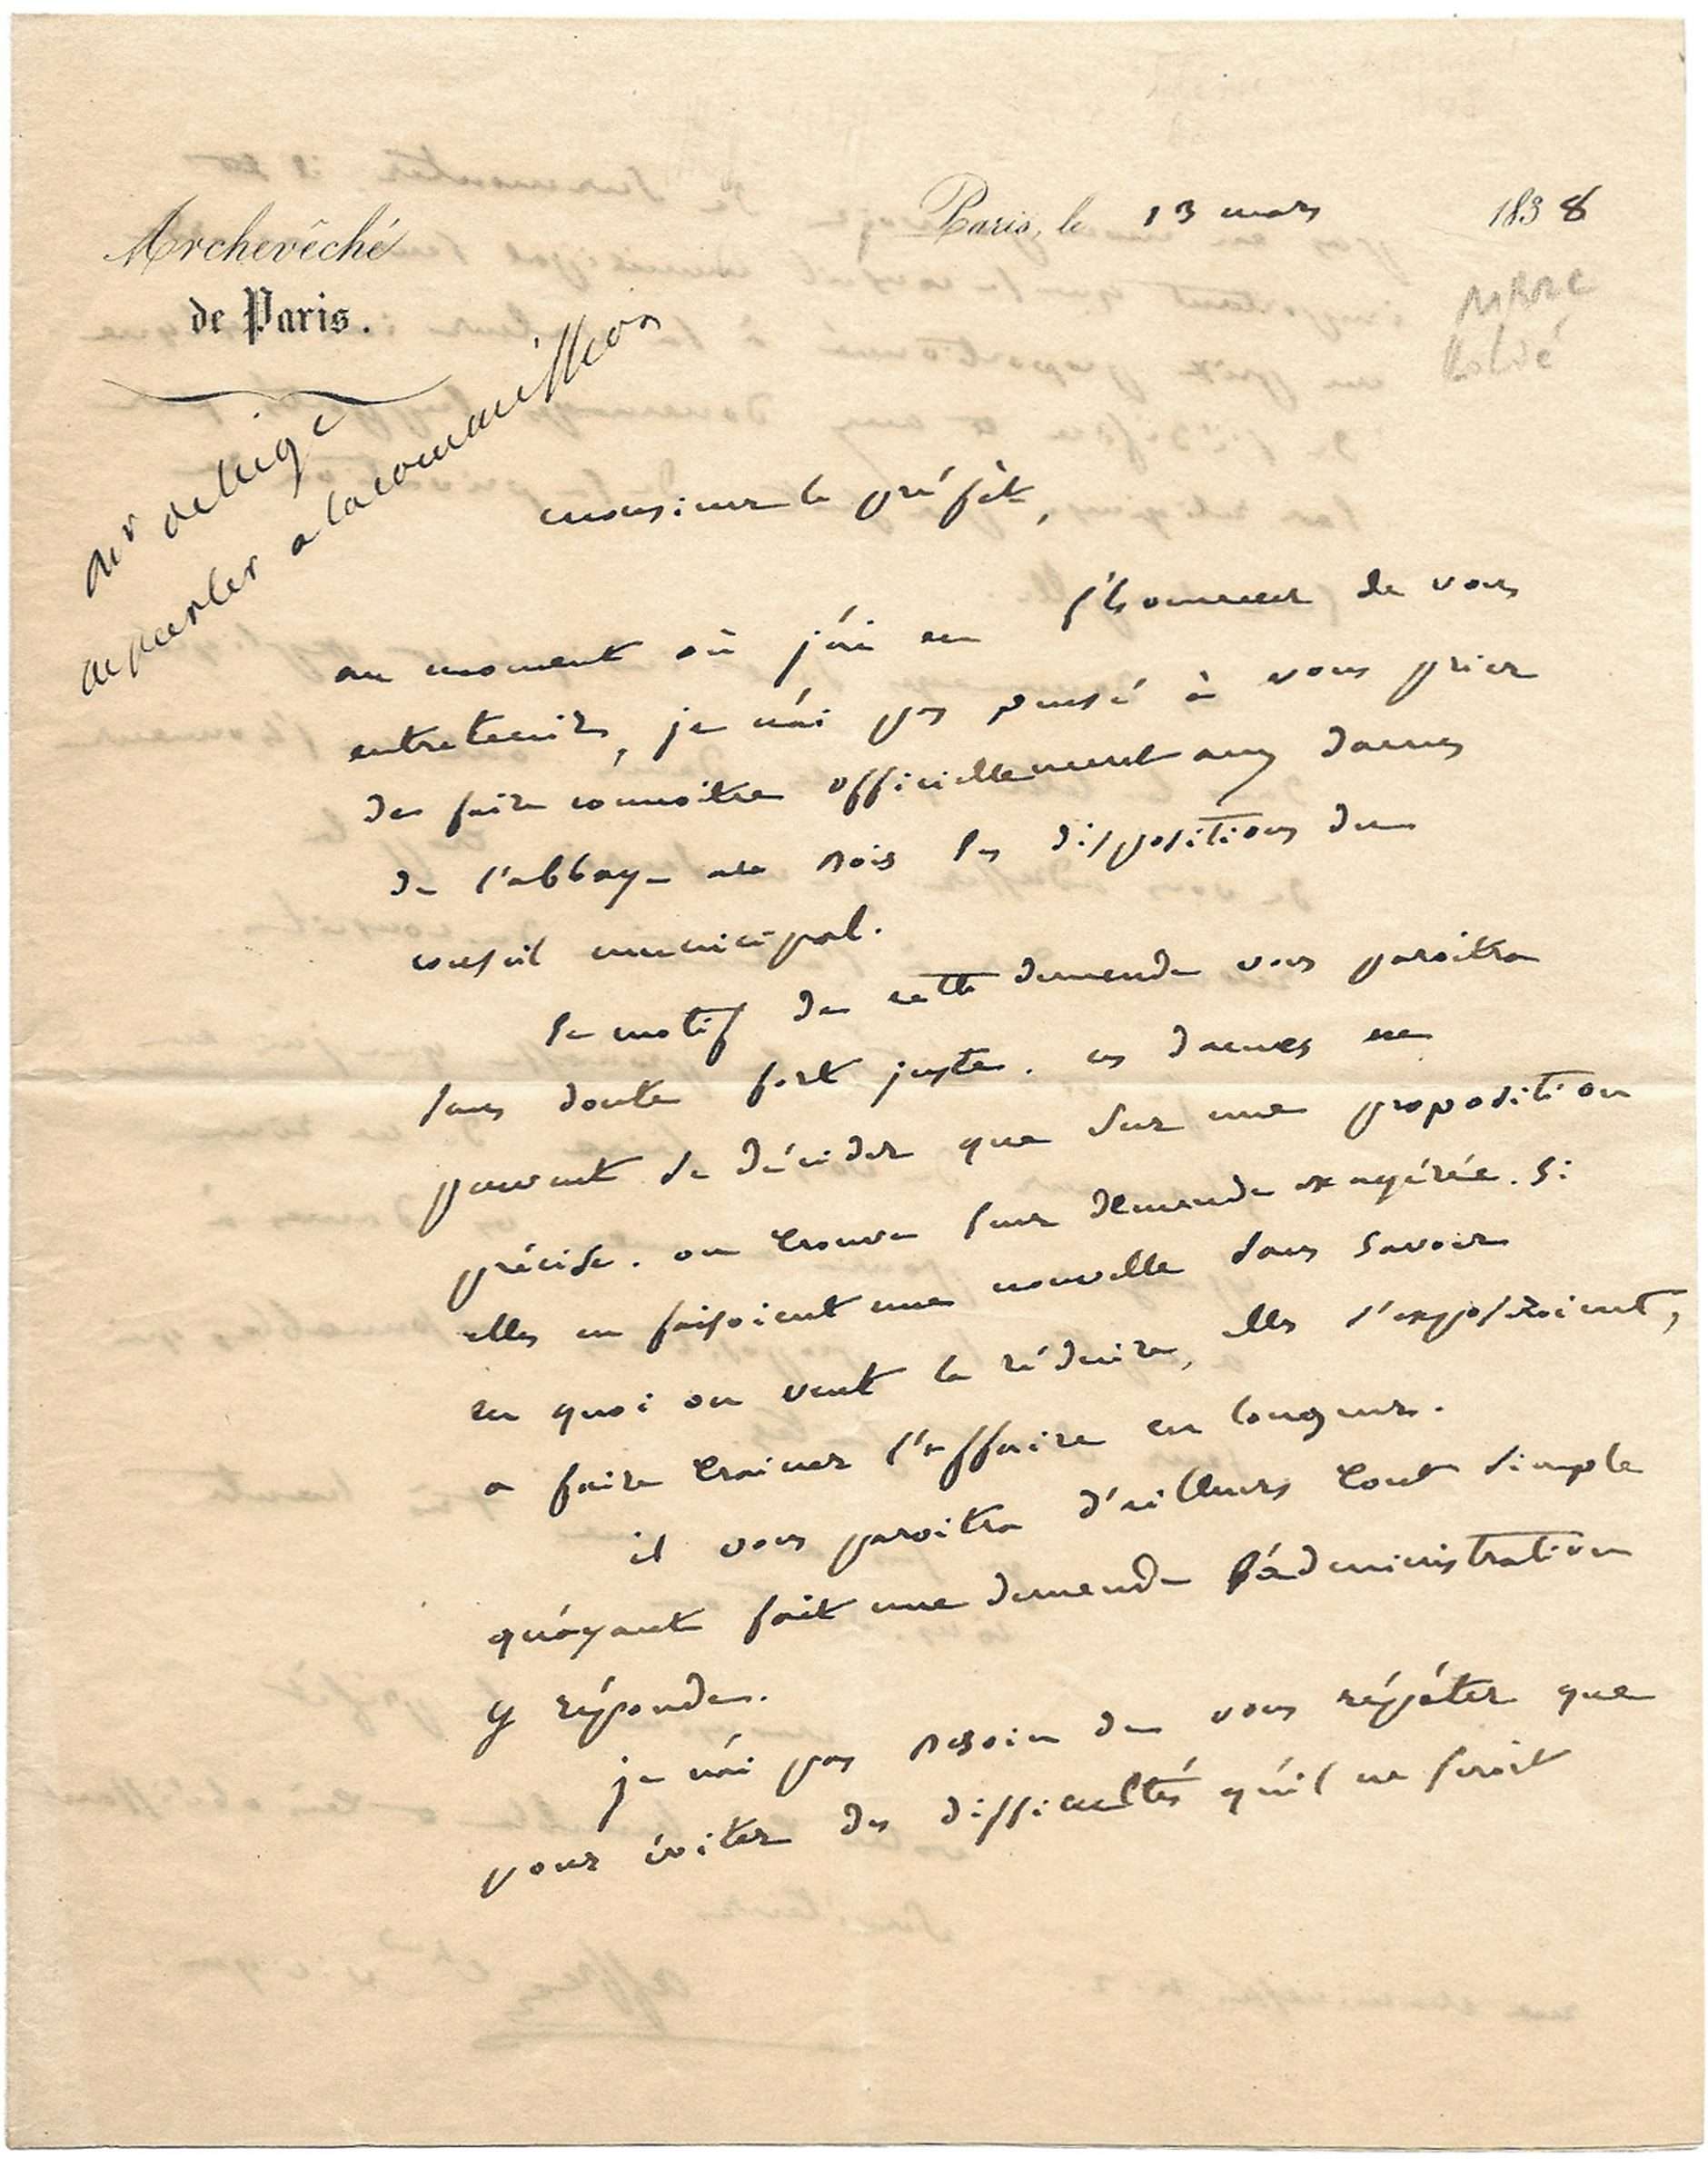 Archevêché
de Paris.
Paris, le 13 mars 1838
Mr deliege
de parler a la commission
monsieur le préfet,
au moment où j'ai eu l'honneur de vous
entretenir, je n'ai pas pensé à vous prier
de faire connoître officiellement aux dames
de l'abbaye aux Bois les dispositions du
conseil municipal.
le motif de cette demande vous paroitra
sans doute fort juste. ces dames ne
peuvent se décider que sur une proposition
précise. on trouve leur demande exagérée. si
elles en faisoient une nouvelle sans savoir
en quoi on veut la réduire, elles s'exposeroient,
a faire trainer l'affaire en longueur.
il vous paroitra d'ailleurs tout simple
qu'ayant fait une demande l'administration
y réponde.
je n'ai pas besoin de vous répéter que
pour éviter des difficultés qu'il ne seroit